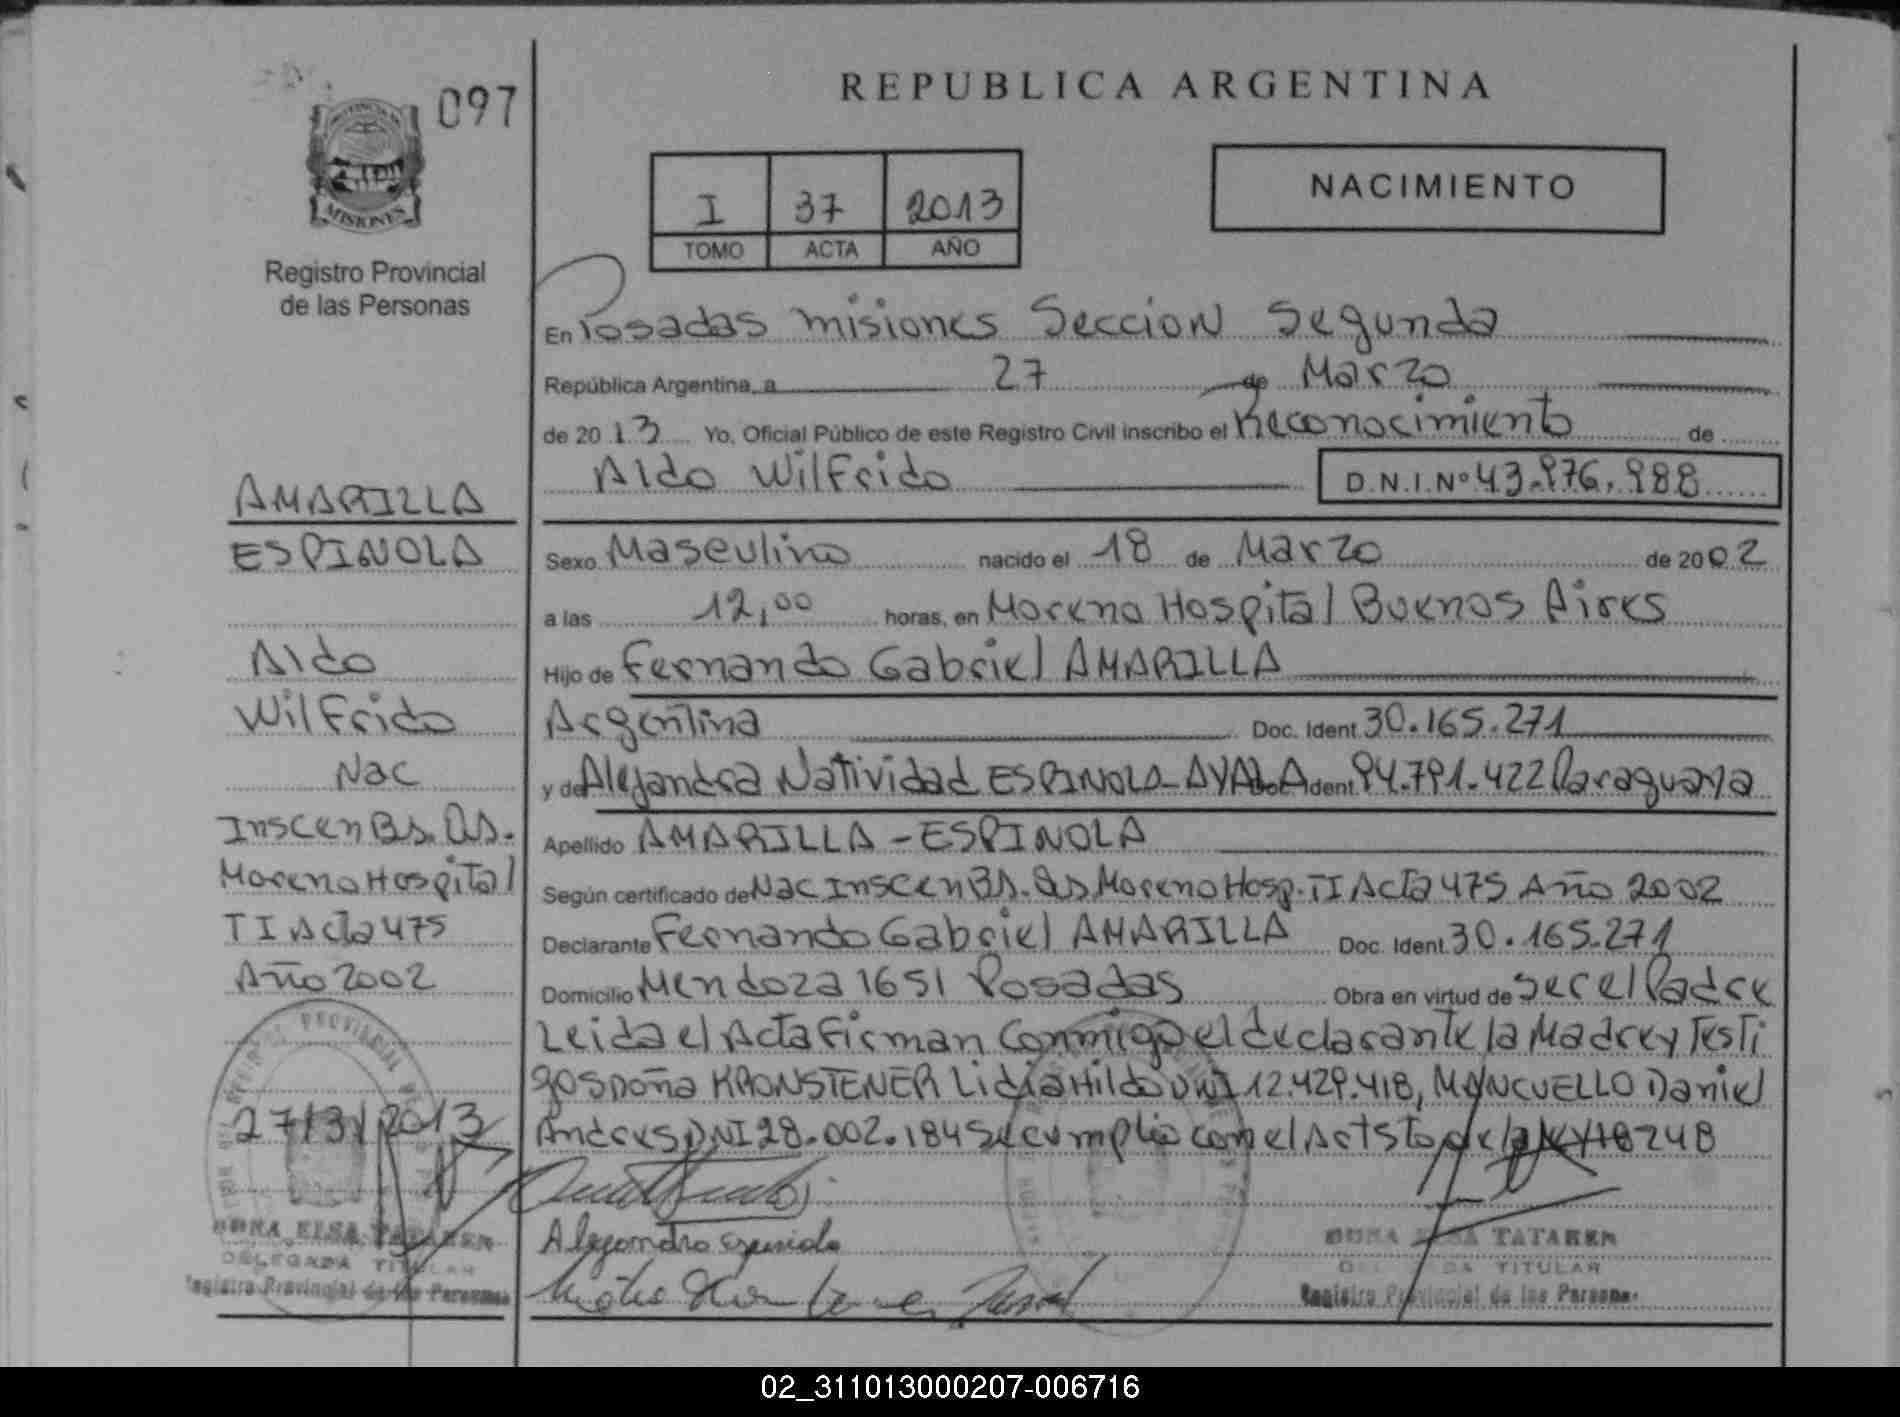 097
REPUBLICA ARGENTINA
PROVINCIA DE
MISIONES
Registro Provincial
de las Personas
I 37 2013
TOMO ACTA AÑO
NACIMIENTO
En Posadas Misiones Seccion Segunda
República Argentina, a 27 de Marzo
de 2013 Yo, Oficial Público de este Registro Civil inscribo el Reconocimiento de
Aldo Wilfrido D.N.I.Nº 43.976.988
AMARILLA
ESPINOLA
Aldo
Wilfrido
Nac
Insc en Bs. As.
Moreno Hospital
TI Acta 475
Año 2002
27/3/2013
Sexo Masculino nacido el 18 de Marzo de 2002
a las 12,00 horas, en Moreno Hospital Buenos Aires
Hijo de Fernando Gabriel AMARILLA
Argentina Doc. Ident 30.165.271
y de Alejandra Natividad ESPINOLA-AYALA Ident 94.791.422 Paraguaya
Apellido AMARILLA - ESPINOLA
Según certificado de Nac Insc en Bs. As Moreno Hosp. TI Acta 475 Año 2002
Declarante Fernando Gabriel AMARILLA Doc. Ident 30.165.271
Domicilio Mendoza 1651 Posadas Obra en virtud de Ser el Padre
Leida el Acta Firman Conmigo el declarante la Madre y Testi
gos Doña KRONSTENER Lidia Hilda DNI 12.429.418, MANCUELLO Daniel
Andres DNI 28.002.184 Se cumplio con el Art 5to de la Ley 18248
Alejandra Espinola
DORA ELSA TATAREN
DELEGADA TITULAR
Registro Provincial de las Personas
DORA ELSA TATAREN
DELEGADA TITULAR
Registro Provincial de las Personas
02_311013000207-006716